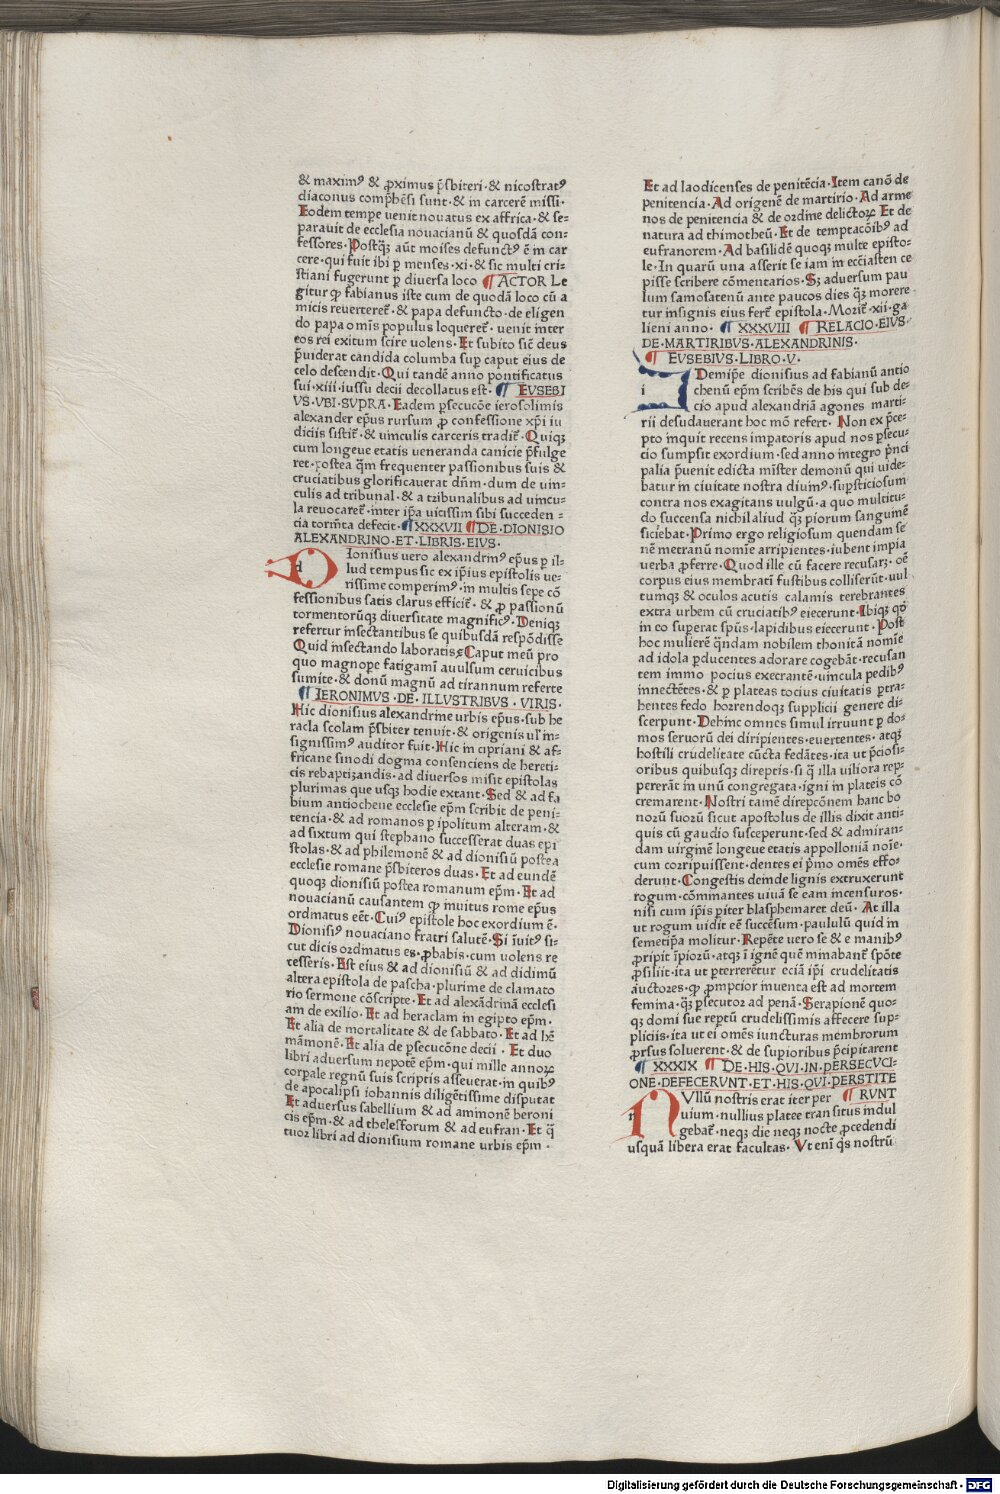 & maximꝰ & ꝓximus p̄sbiteri·& nicostratꝰ
diaconus comp̄hēsi sunt·& in carcerē missi·
Eodem tempe uenit nouatus ex affrica·& se⸗
parauit de ecclesia nouacianū & quosdā con⸗
fessores·Postq̄ȝ aūt moises defunctꝰ ē in car
cere·qui fuit ibi ꝑ menses·xi·& sic multi cri⸗
stiani fugerunt ꝑ diuersa loco ¶ ACTOR Le
gitur ꝙ fabianus iste cum de quodā loco cū a
micis reuerteret̄·& papa defuncto·de eligen
do papa om̄is populus loqueret̄·uenit inter
eos rei exitum scire uolens·Et subito siē deus
p̄uiderat candida columba suꝑ caput eius de
celo descendit·Qui tandē anno pontificatus
sui·xiii·iussu decii decollatus est·¶ EVSEBI
VS·VBI·SVPRA·Eadem ꝑsecucōe ierosolimis
alexander ep̄us rursum ꝓ confessione xp̄i iu
diciis sistit̄·& uinculis carceris tradit̄·Quiqȝ
cum longeue etatis ueneranda canicie p̄fulge
ret·postea q̄m frequenter passionibus suis &
cruciatibus glorificauerat dn̄m·dum de uin⸗
culis ad tribunal·& a tribunalibus ad uincu⸗
la reuocaret̄·inter ip̄a uicissim sibi succeden⸗
cia torm̄ta defecit·¶XXXVII ¶DE·DIONISIO
ALEXANDRINO·ET·LIBRIS·EIVS·
d Ionisius uero alexandrinꝰ ep̄us ꝑ il⸗
lud tempus sic ex ip̄ius epistolis ue⸗
rissime comperimꝰ·in multis sepe cō
fessionibus satis clarus efficit̄·& ꝓ passionū
tormentorūqȝ diuersitate magnificꝰ·Deniqȝ
refertur insectantibus se quibusdā respōdisse
Quid insectando laboratis?Caput meū pro
quo magnope fatigamī auulsum ceruicibus
sumite·& donū magnū ad tirannum referte
¶ IERONIMVS·DE·ILLVSTRIBVS·VIRIS·
Hic dionisius alexandrine urbis ep̄us·sub he
racla scolam p̄sbiter tenuit·& origenis ual in⸗
signissimꝰ auditor fuit·Hic in cipriani & af⸗
fricane sinodi dogma consenciens de hereti⸗
cis rebaptizandis·ad diuersos misit epistolas
plurimas que usqȝ hodie extant·Sed & ad fa
bium antiochene ecclesie ep̄m scribit de peni⸗
tencia·& ad romanos ꝑ ipolitum alteram·&
ad sixtum qui stephano successerat duas epi
stolas·& ad philemonē & ad dionisiū postea
ecclesie romane p̄sbiteros duas·Et ad eundē
quoqȝ dionisiū postea romanum ep̄m·Et ad
nouacianū causantem ꝙ inuitus rome ep̄us
ordinatus eēt·Cuiꝰ epistole hoc exordium ē·
Dionisiꝰ nouaciano fratri salutē·Si īuitꝰ si⸗
cut dicis ordinatus es·ꝓbabis·cum uolens re
cesseris·Est eius & ad dionisiū & ad didimū
altera epistola de pascha·plurime de clamato
rio sermone cōscripte·Et ad alexādrinā ecclesi
am de exilio·Et ad heraclam in egipto ep̄m·
Et alia de mortalitate & de sabbato·Et ad hē
māmonē·Et alia de ꝑsecucōne decii·Et duo
libri aduersum nepotē ep̄m·qui mille annoꝝ
corpale regnū suis scriptis asseuerat·in quibꝰ
de apocalipsi iohannis diligētissime disputat
Et aduersus sabellium & ad amimonē beroni
cis ep̄m·& ad thelesforum & ad eufran·Et q̄
tuor libri ad dionisium romane urbis ep̄m·
Et ad laodicenses de penitēcia·Item canō de
penitencia·Ad origenē de martirio·Ad arme
nos de penitencia & de ordine delictoꝝ Et de
natura ad thimotheū·Et de temptacōibꝰ ad
eufranorem·Ad basilidē quoqȝ multe episto⸗
le·In quarū una asserit se iam in ecc̄iasten ce
pisse scribere cōmentarios·Sȝ aduersum pau
lum samosatenū ante paucos dies qȝ morere
tur insignis eius fert̄ epistola·Morit̄·xii·ga
lieni anno·¶ XXXVIII ¶ RELACIO·EIVS·
DE·MARTIRIBVS·ALEXANDRINIS·
¶ EVSEBIVS·LIBRO·V·
i Demip̄e dionisius ad fabianū antio
chenū ep̄m scribēs de his qui sub de⸗
cio apud alexandriā agones marti⸗
rii desudauerant hoc mō refert·Non ex p̄ce⸗
pto inquit recens imꝑatoris apud nos ꝑsecu⸗
cio sumpsit exordium·sed anno integro p̄nci
palia p̄uenit edicta mīster demonū qui uide⸗
batur in ciuitate nostra diuinꝰ·suꝑsticiosum
contra nos exagitans uulgū·a quo multitu⸗
do succensa nichil aliud qȝ piorum sanguinē
siciebat·Primo ergo religiosum quendam se
nē metranū nomīe arripientes·iubent impia
uerba ꝓferre·Quod ille cū facere recusarȝ·oē
corpus eius membratī fustibus colliserūt·uul
tumqȝ & oculos acutis calamis terebrantes
extra urbem cū cruciatibꝰ eiecerunt·Ibiqȝ qō
in eo superat sp̄us·lapidibus eiecerunt·Post
hoc mulierē q̄ndam nobilem thonitā nomīe
ad idola ꝑducentes adorare cogebāt·recusan
tem immo pocius execrantē·uincula pedibꝰ
innectētes·& ꝑ plateas tocius ciuitatis ꝑtra⸗
hentes fedo horrendoqȝ supplicii genere di⸗
scerpunt·Dehinc omnes simul irruunt ꝑ do⸗
mos seruorū dei diripientes·euertentes·atqȝ
hostili crudelitate cūcta fedātes·ita ut p̄ciosi⸗
oribus quibusqȝ direptis·si q̄ illa uiliora rep⸗
pererāt in unū congregata·igni in plateis cō
cremarent·Nostri tamē direpcōnem hanc bo
norū suorū sicut apostolus de illis dixit anti⸗
quis cū gaudio susceperunt·sed & admiran⸗
dam uirginē longeue etatis appolloniā noīe·
cum corripuissent·dentes ei p̄mo omēs effo⸗
derunt·Congestis deinde lignis extruxerunt
rogum·cōmmantes uiuā se eam incensuros·
nisi cum ip̄is pīter blasphemaret deū·At illa
ut rogum uidit eē succēsum·paululū quid in
semetip̄a molitur·Repēte uero se & e manibꝰ
ꝓripit īpiorū·atqȝ ī ignē quē minabant̄ spōte
ꝓsiliit·ita ut ꝑterrerētur eciā ip̄i crudelitatis
auctores·ꝙ ꝓmpcior inuenta est ad mortem
femina·qȝ ꝑsecutor ad penā·Serapionē quo⸗
qȝ domi sue reptū crudelissimis affecere sup⸗
pliciis·ita ut ei omēs iuncturas membrorum
ꝓrsus soluerent·& de suꝑioribus p̄cipitarent
¶ XXXIX ¶ DE·HIS·QVI·IN·PERSECVCI⸗
ONE·DEFECERVNT·ET·HIS·QVI·PERSTITE
n Vllū nostris erat iter per ¶ RVNT
uium·nullius platee transitus indul
gebat̄·neqȝ die neqȝ nocte ꝓcedendi
usquā libera erat facultas·Vt enī q̄s nostrū
Digitalisierung gefördert durch die Deutsche Forschungsgemeinschaft · DFG